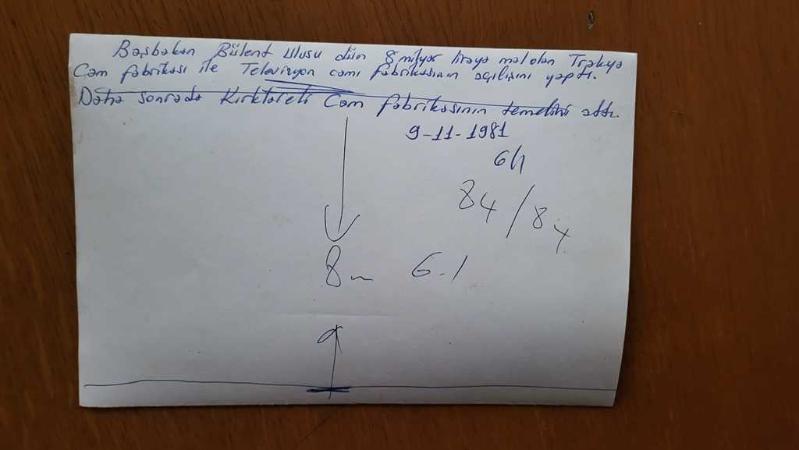 Başbakan Bülent Ulusu dün 8 milyar liraya mal olan Trakya
Cam fabrikası ile Televizyon camı fabrikasının açılışını yaptı.
Daha sonrada Kırklareli Cam fabrikasının temelini attı.
9-11-1981
6/1
84/84
8m 6.1